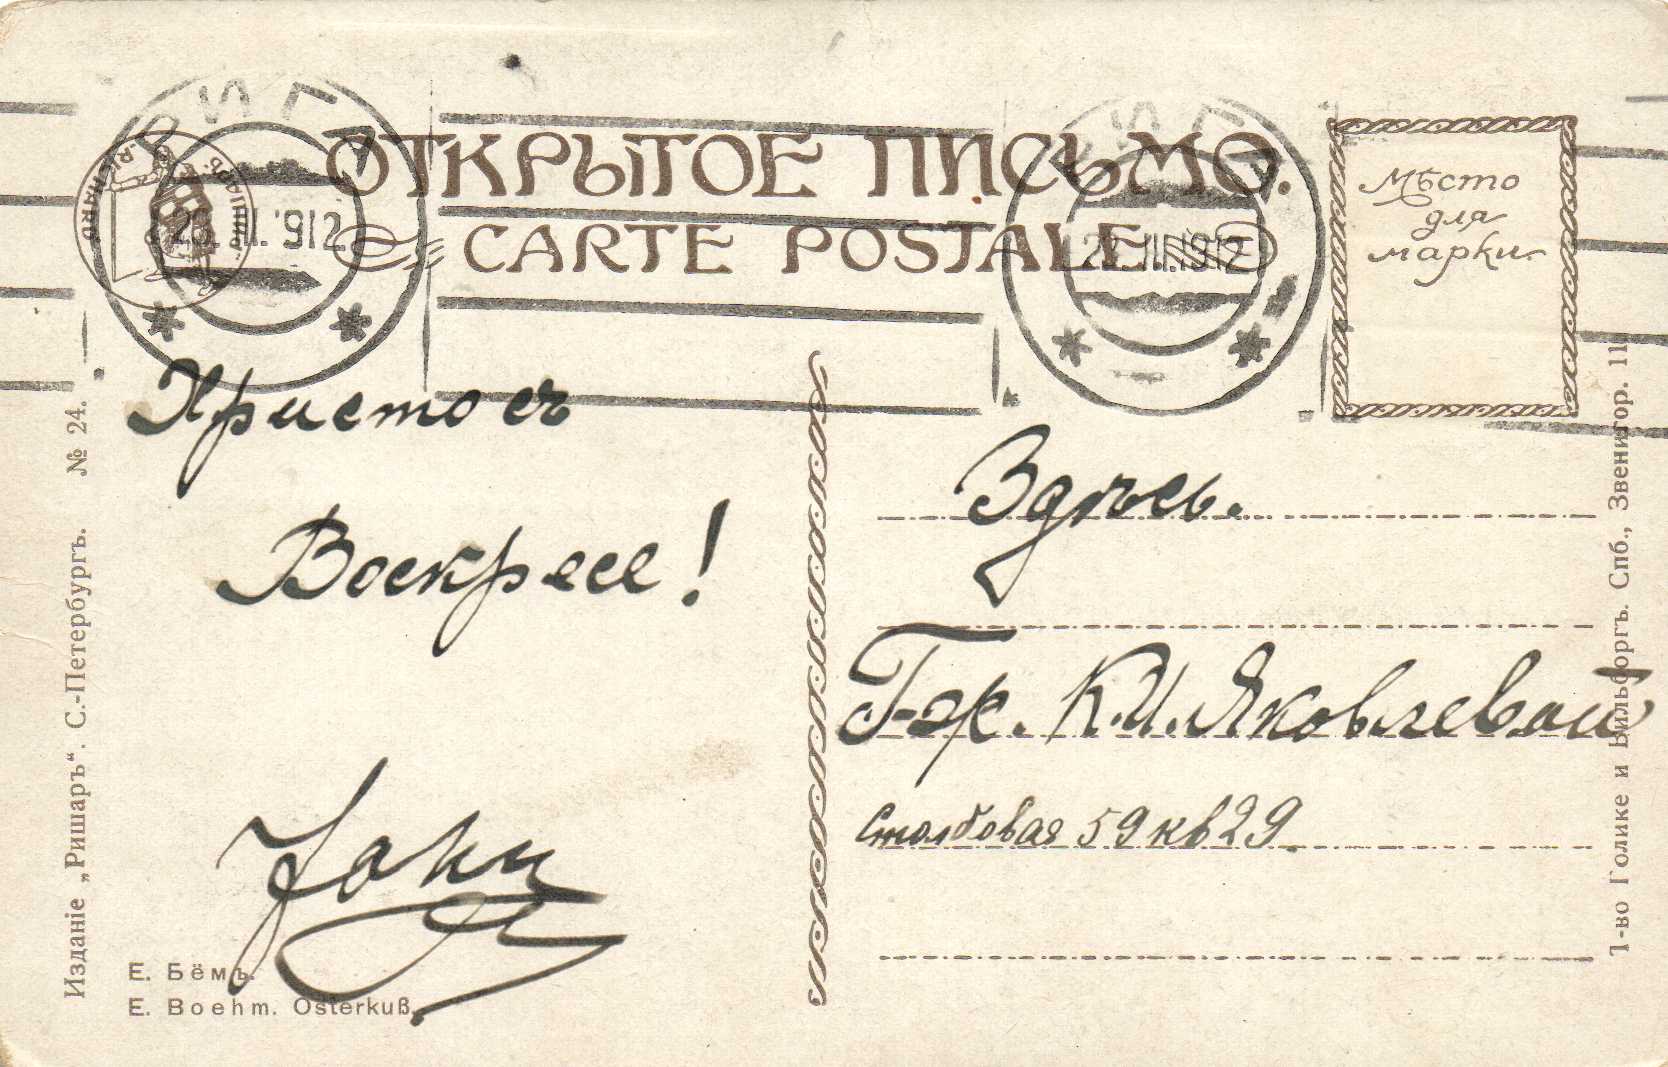 ОТКРЫТОЕ ПИСЬМО.
CARTE POSTALE
Мѣсто
для
марки.
РИГА
23. III. 1912
РИГА
23. III. 1912
"РИШАРЪ"
"RICHARD"
Христосъ
Воскресе!
John
Здѣсь.
Г-ж. К. И. Яковлевой
Столбовая 59 кв 29.
Е. Бёмъ.
E. Boehm. Osterkuß.
Изданіе „Ришаръ“. С.-Петербургъ. № 24.
Т-во Голике и Вильборгъ. Спб., Звенигор. 11